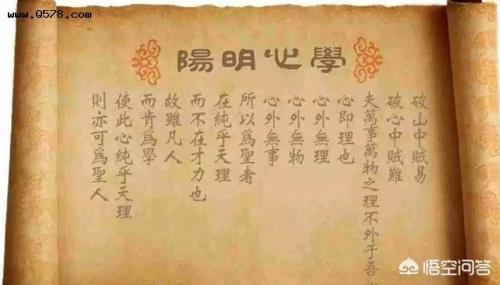 www.Q578.com
陽明心學
破山中賊易
破心中賊難
夫萬事萬物之理不外于吾
心即理也
心外無理
心外無物
心外無事
所以爲聖者
在純乎天理
而不在才力也
故雖凡人
而肯爲學
使此心純乎天理
則亦可爲聖人
悟空问答